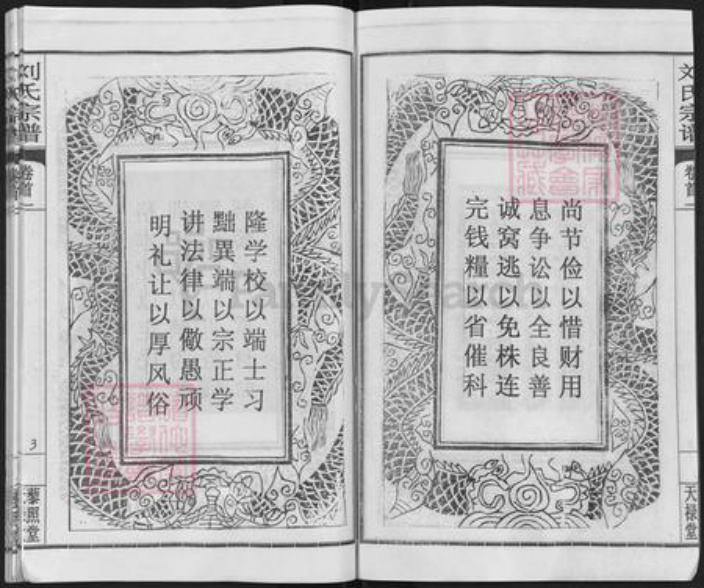 尚节俭以惜财用
息争讼以全良善
诚窝逃以免株连
完钱糧以省催科
卷首
天禄堂
隆学校以端士习
黜異端以宗正学
讲法律以儆愚顽
明礼让以厚风俗
刘氏宗谱
卷首
3
藜照堂